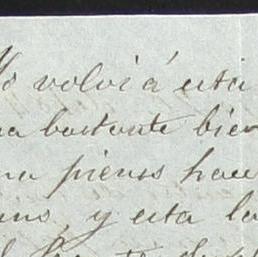 Yo volvi á esta
na bastante bien
na pienso hac
uno, y esta la